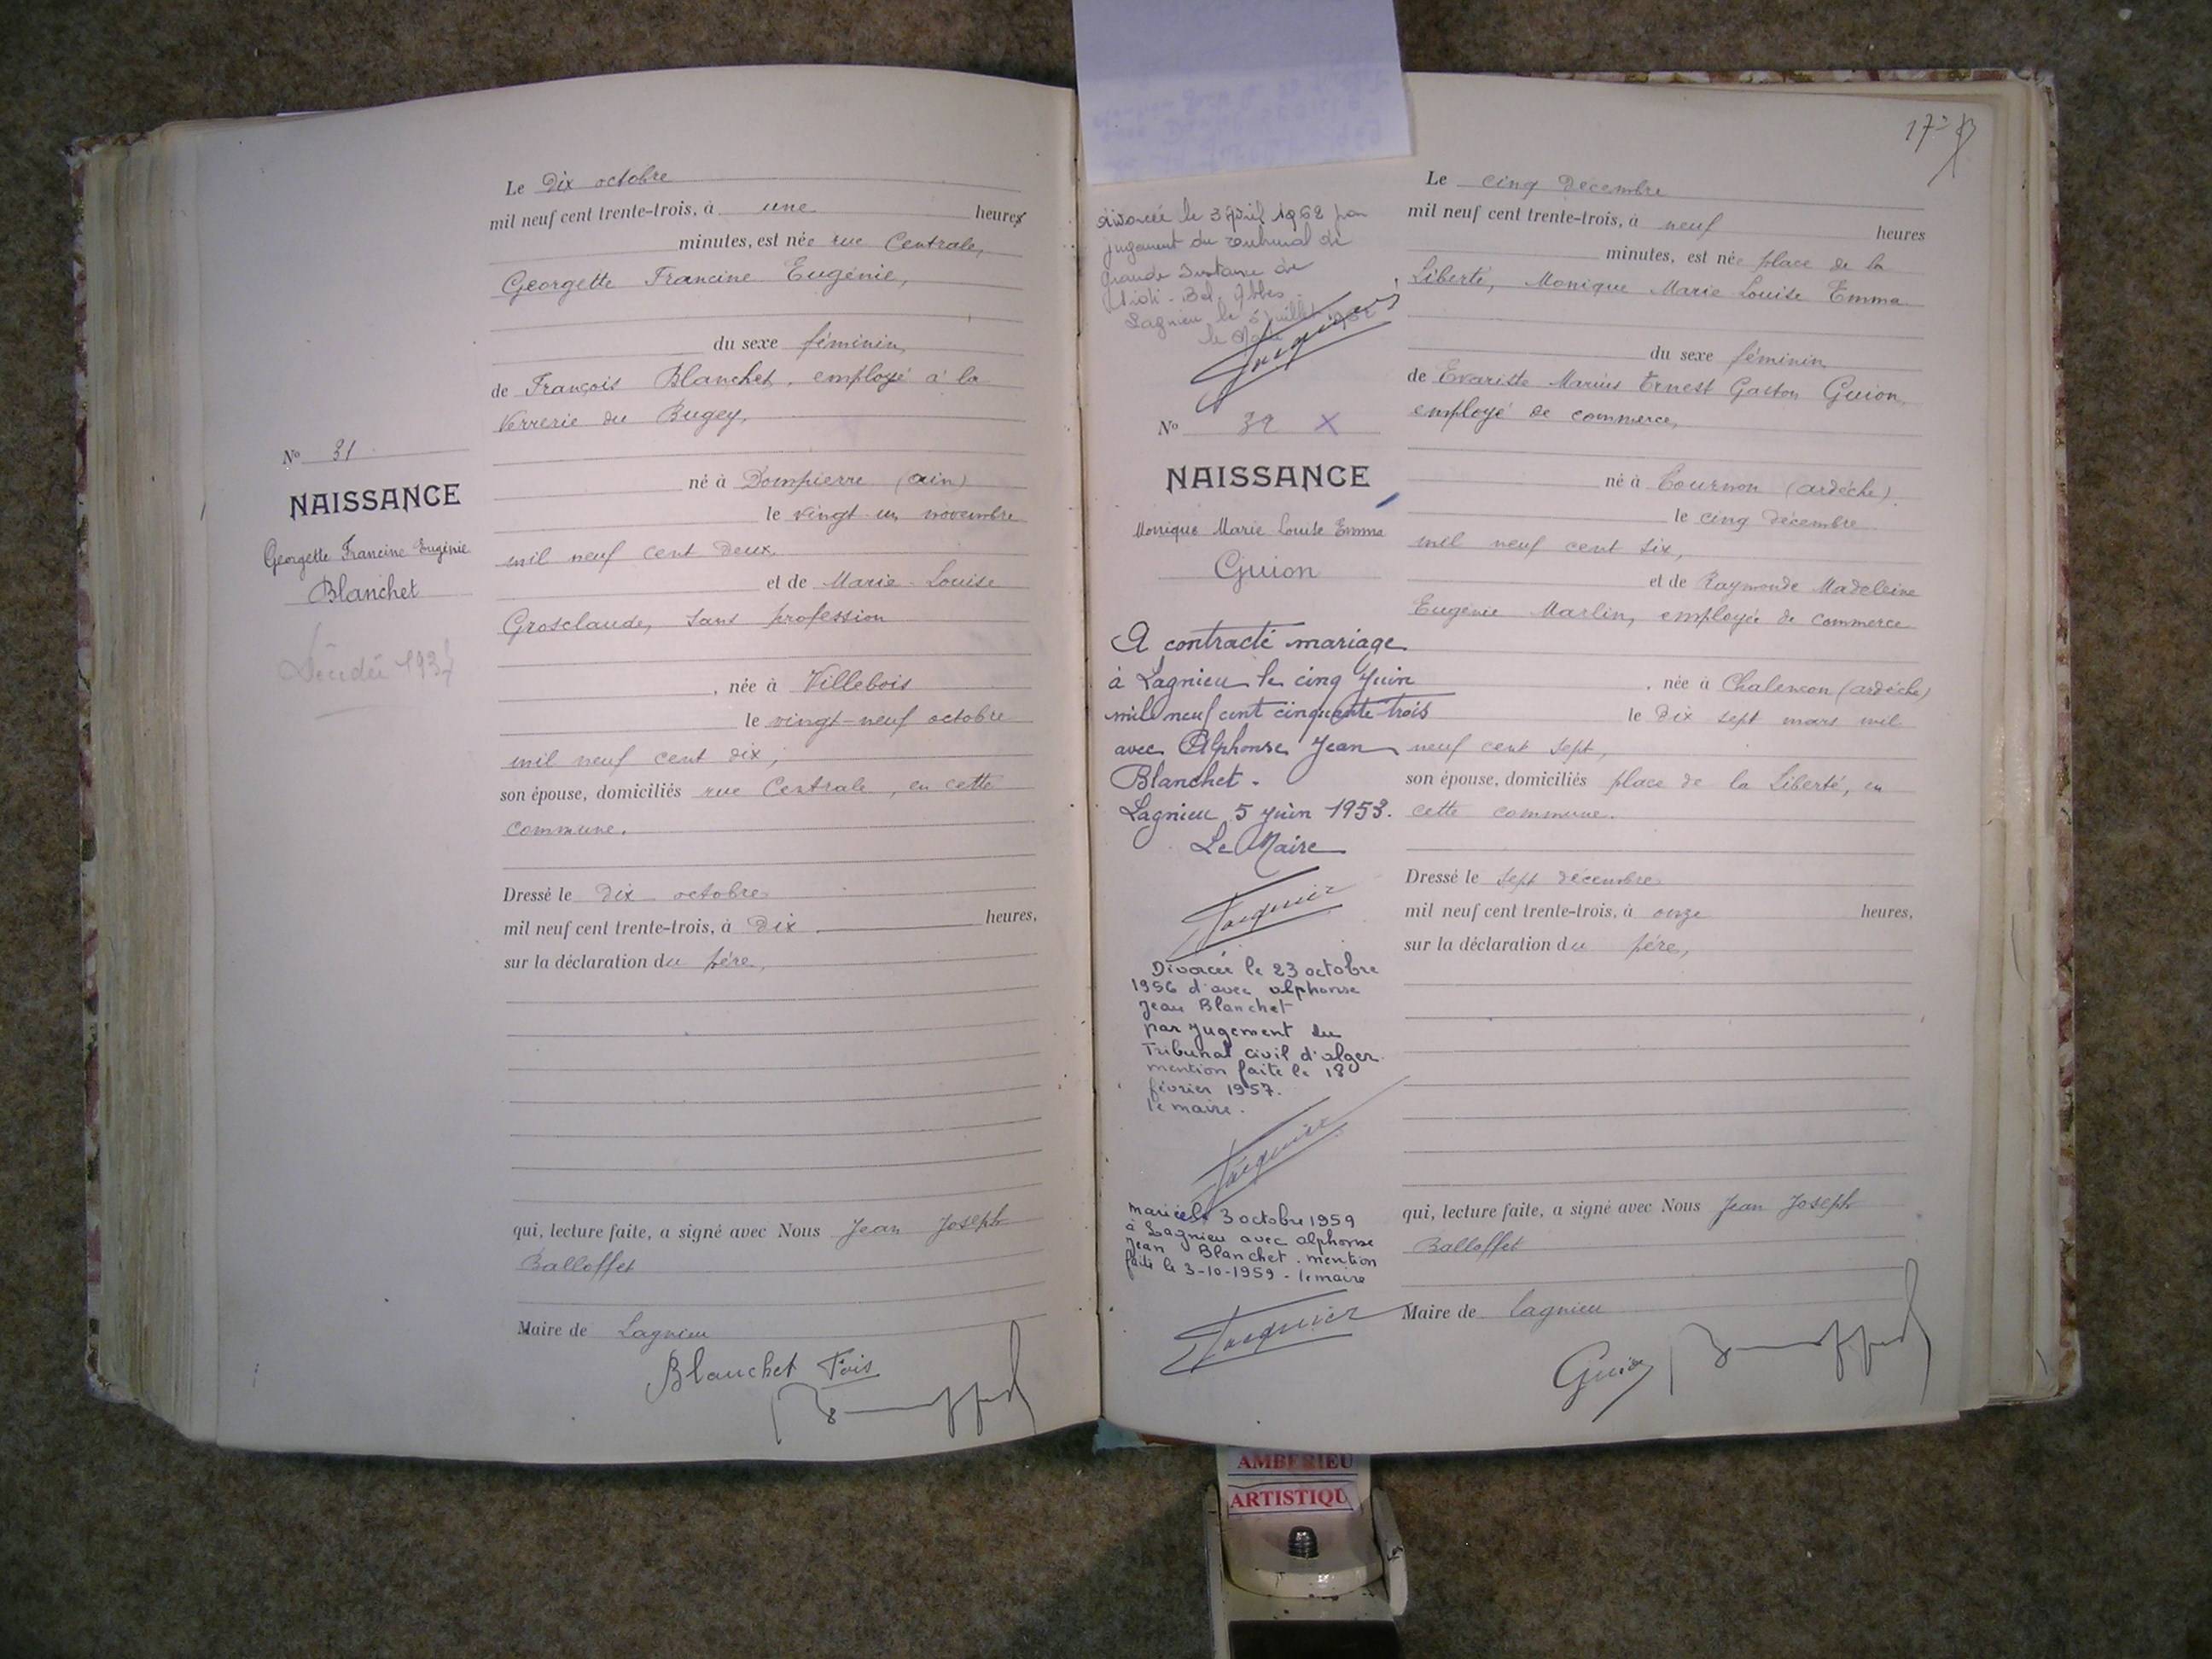 Le Dix octobre
mil neuf cent trente-trois, à une heures
minutes, est née rue Centrale,
Georgette Francine Eugénie,
du sexe féminin,
de François Blanchet, employé à la
Verrerie du Bugey,
né à Dompierre (ain)
le vingt un novembre
mil neuf cent deux,
et de Marie-Louise
Grosclaude, sans profession
, née à Villebois
le vingt-neuf octobre
mil neuf cent dix,
son épouse, domiciliés rue Centrale, en cette
commune.
Dressé le dix octobre
mil neuf cent trente-trois, à Dix heures,
sur la déclaration du père,
qui, lecture faite, a signé avec Nous Jean Joseph
Balloffet
Maire de Lagnieu
Blanchet Fois
No 31
NAISSANCE
Georgette Francine Eugénie
Blanchet
Décédée 1934
divorcée le 3 Avril 1962 par
jugement du Tribunal de
Grande Instance de
Sidi-Bel-Abbes.
Lagnieu le 5 juillet 1962
le Maire
Jacquier
No 32 X
NAISSANCE
Monique Marie Louise Emma
Guion
A contracté mariage
à Lagnieu le cinq Juin
mil neuf cent cinquante trois
avec Alphonse Jean
Blanchet.
Lagnieu 5 juin 1953.
Le Maire
Jacquier
Divorcée le 23 octobre
1956 d'avec alphonse
Jean Blanchet
par jugement du
Tribunal civil d'alger
mention faite le 18
février 1957.
le maire.
Jacquier
mariée le 3 octobre 1959
à Lagnieu avec alphonse
Jean Blanchet. mention
faite le 3-10-1959 - le maire
Jacquier
Le cinq décembre
mil neuf cent trente-trois, à neuf heures
minutes, est née place de la
Liberté, Monique Marie Louise Emma
du sexe féminin,
de Evariste Marius Ernest Gaston Guion,
employé de commerce,
né à Tournon (ardèche)
le cinq décembre
mil neuf cent six,
et de Raymonde Madeleine
Eugénie Marlin, employée de commerce
, née à Chalencon (ardèche)
le dix sept mars mil
neuf cent sept,
son épouse, domiciliés place de la Liberté, en
cette commune.
Dressé le sept décembre
mil neuf cent trente-trois, à onze heures,
sur la déclaration du père,
qui, lecture faite, a signé avec Nous Jean Joseph
Balloffet
Maire de Lagnieu
Guion
AMBERIEU
ARTISTIQU